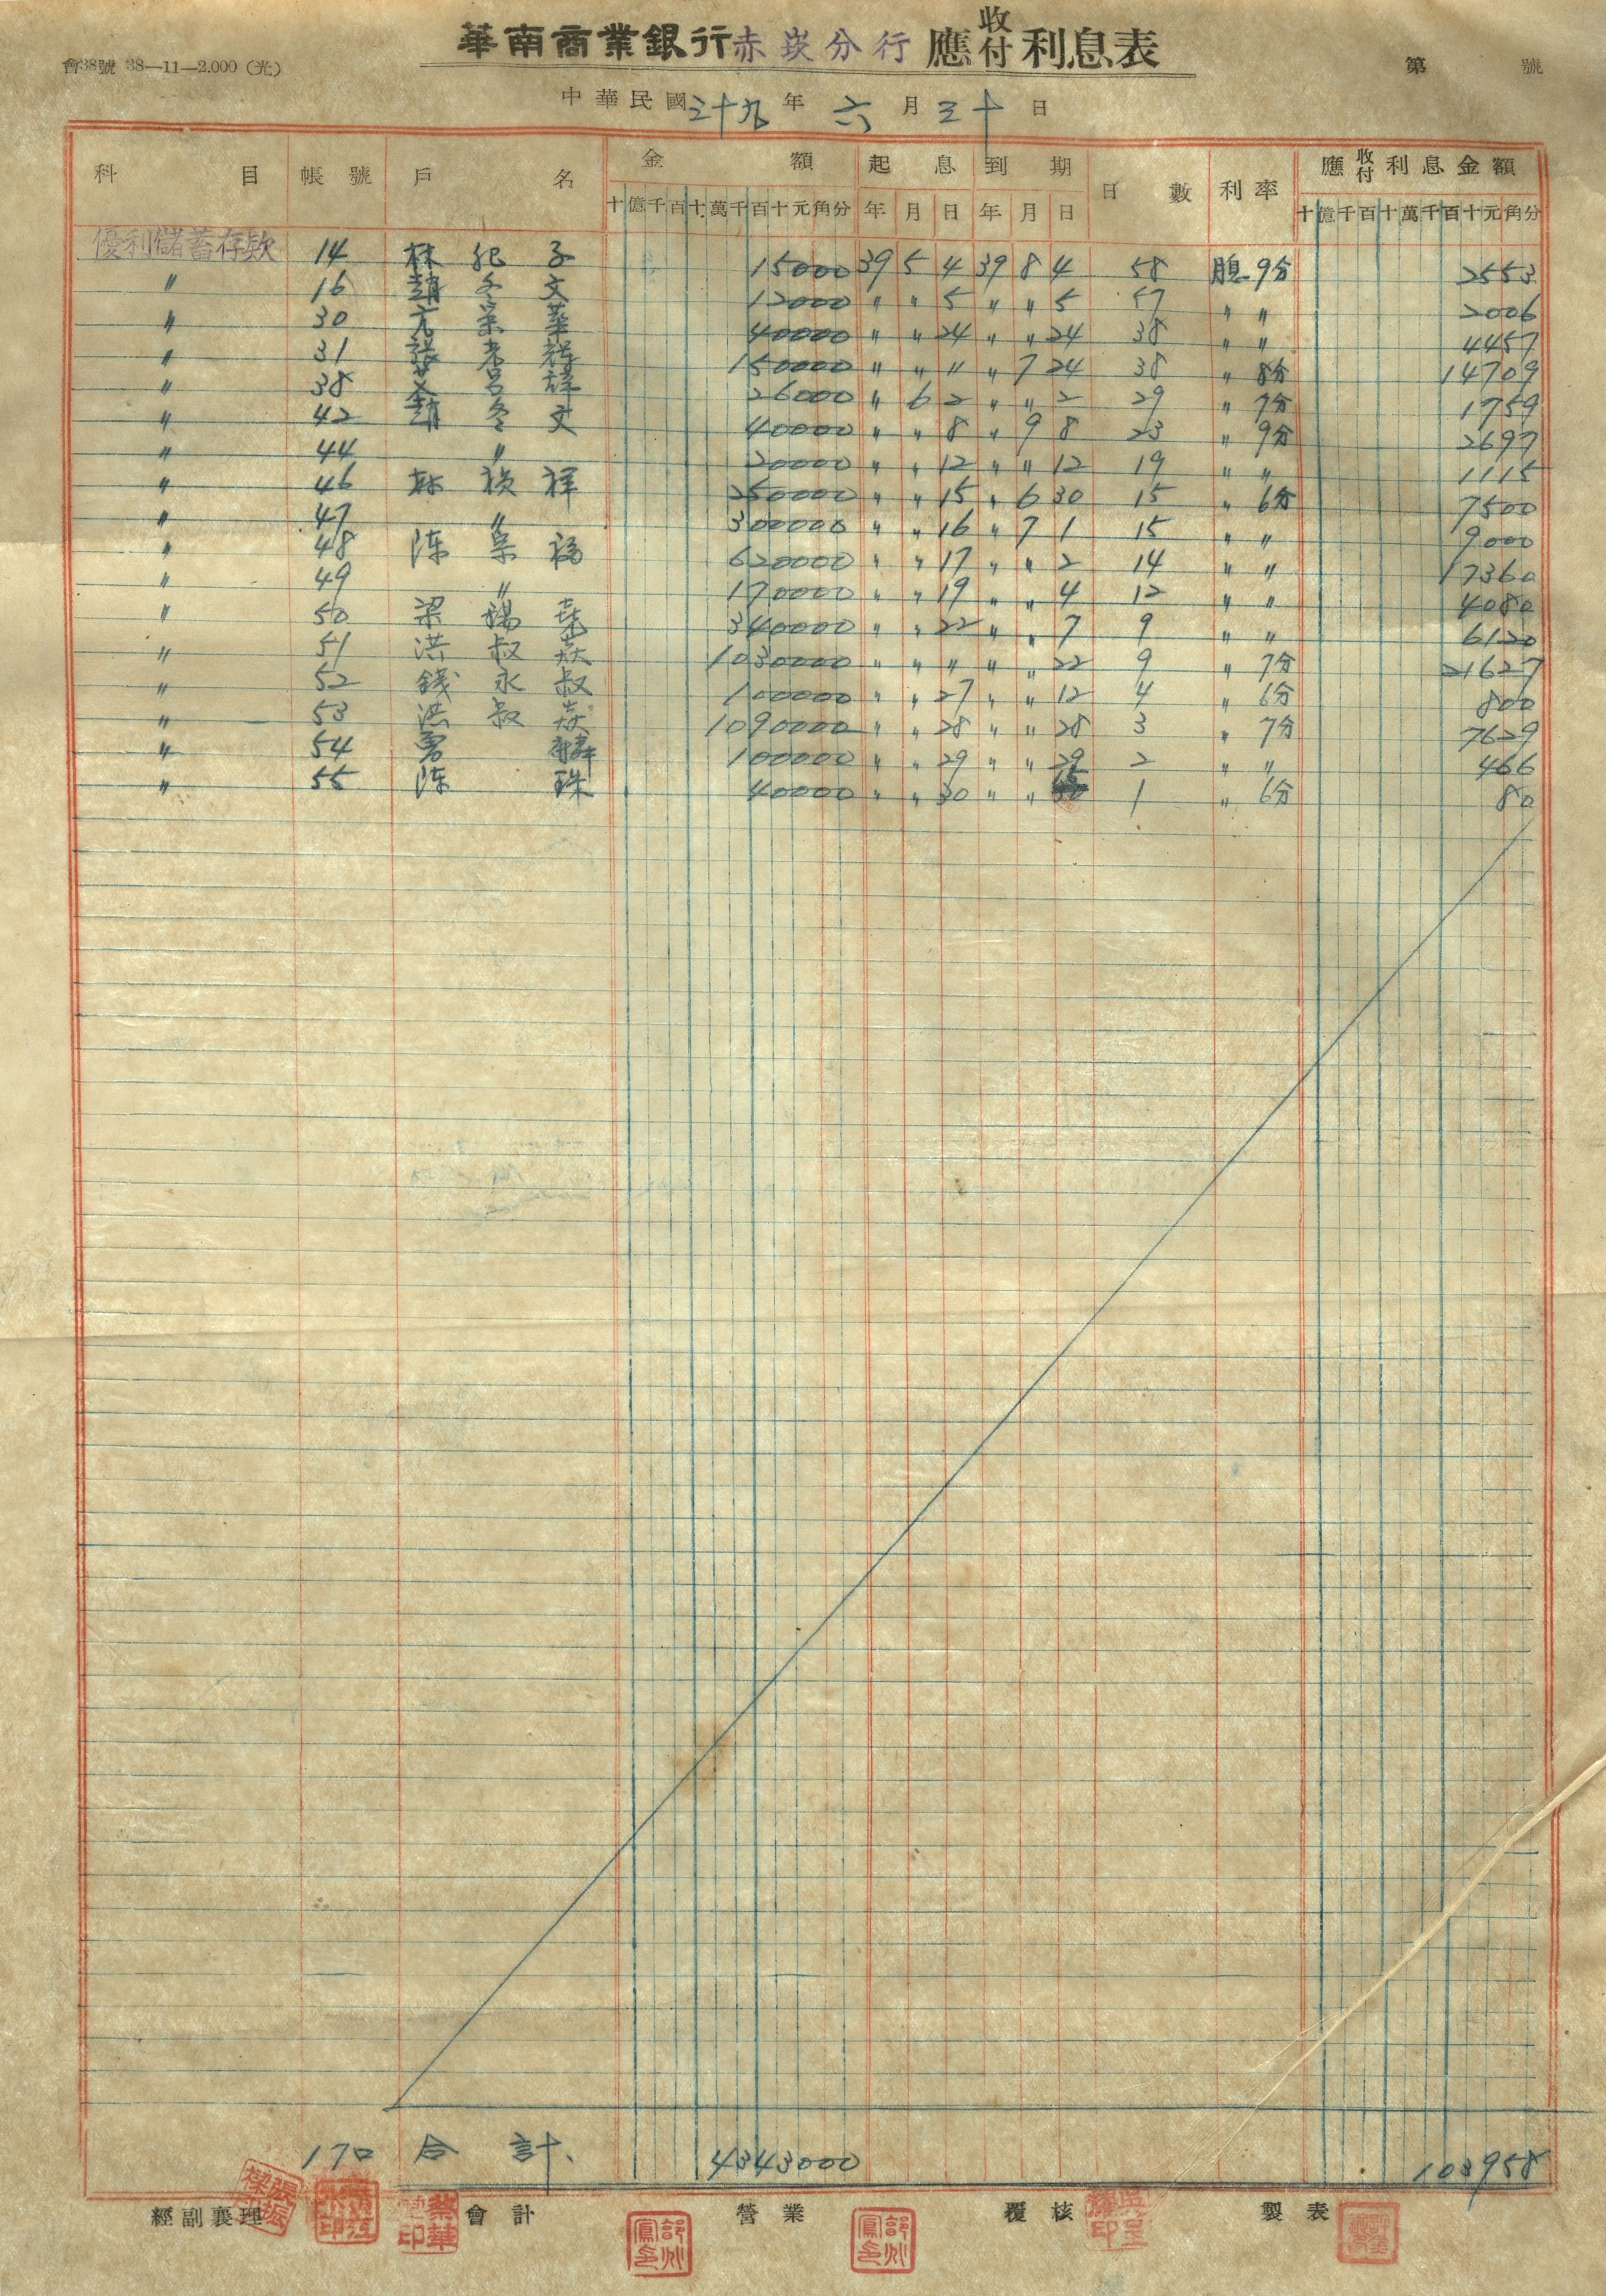 華南商業銀行赤崁分行應收付利息表
會38號 38—11—2.000 (光)
第 號
中華民國三十九年六月三十日
科目 帳號 戶名 金額 起息 到期 日數 利率 應收付利息金額
十億千百十萬千百十元角分 年 月 日 年 月 日 十億千百十萬千百十元角分
優利儲蓄存款 14 林 子 15000 39 5 4 39 8 4 58 9分 2553
〃 16 趙冬文 12000 〃 〃 5 〃 〃 5 57 〃 〃 2006
〃 30 華 40000 〃 〃 24 〃 〃 24 38 〃 〃 4457
〃 31 150000 〃 〃 〃 〃 7 24 38 〃 8分 14709
〃 38 26000 〃 6 2 〃 〃 2 29 〃 7分 1759
〃 42 趙冬文 40000 〃 〃 8 〃 9 8 23 〃 9分 2697
〃 44 〃 20000 〃 〃 12 〃 〃 12 19 〃 〃 1115
〃 46 祥 250000 〃 〃 15 〃 6 30 15 〃 6分 7500
〃 47 〃 300000 〃 〃 16 〃 7 1 15 〃 〃 9000
〃 48 陈 福 620000 〃 〃 17 〃 〃 2 14 〃 〃 17360
〃 49 〃 170000 〃 〃 19 〃 〃 4 12 〃 〃 4080
〃 50 梁 340000 〃 〃 22 〃 〃 7 9 〃 〃 6120
〃 51 洪叔焱 1030000 〃 〃 〃 〃 〃 22 9 〃 7分 21627
〃 52 錢永叔 100000 〃 〃 27 〃 〃 12 4 〃 6分 800
〃 53 洪叔焱 1090000 〃 〃 28 〃 〃 28 3 〃 7分 7629
〃 54 麟 100000 〃 〃 29 〃 〃 29 2 〃 〃 466
〃 55 陈珠 40000 〃 〃 30 〃 〃 1 〃 6分 80
170 合計 4343000 103958
經副襄理 會計 營業 覆核 製表